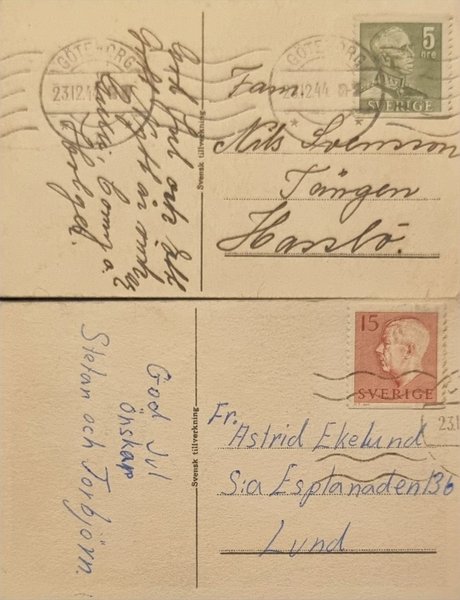 GÖTEBORG
23.12.44
GÖTEBORG
23.12.44
5
öre
SVERIGE
God Jul och Gott
Nytt år önskar
Svensk tillverkning
Fam.
Nils Svensson
Tången
Hasslö.
15
SVERIGE
God Jul
önskar
Stefan och Torbjörn.
Svensk tillverkning
Fr.
Astrid Ekelund
S:a Esplanaden 13b
Lund